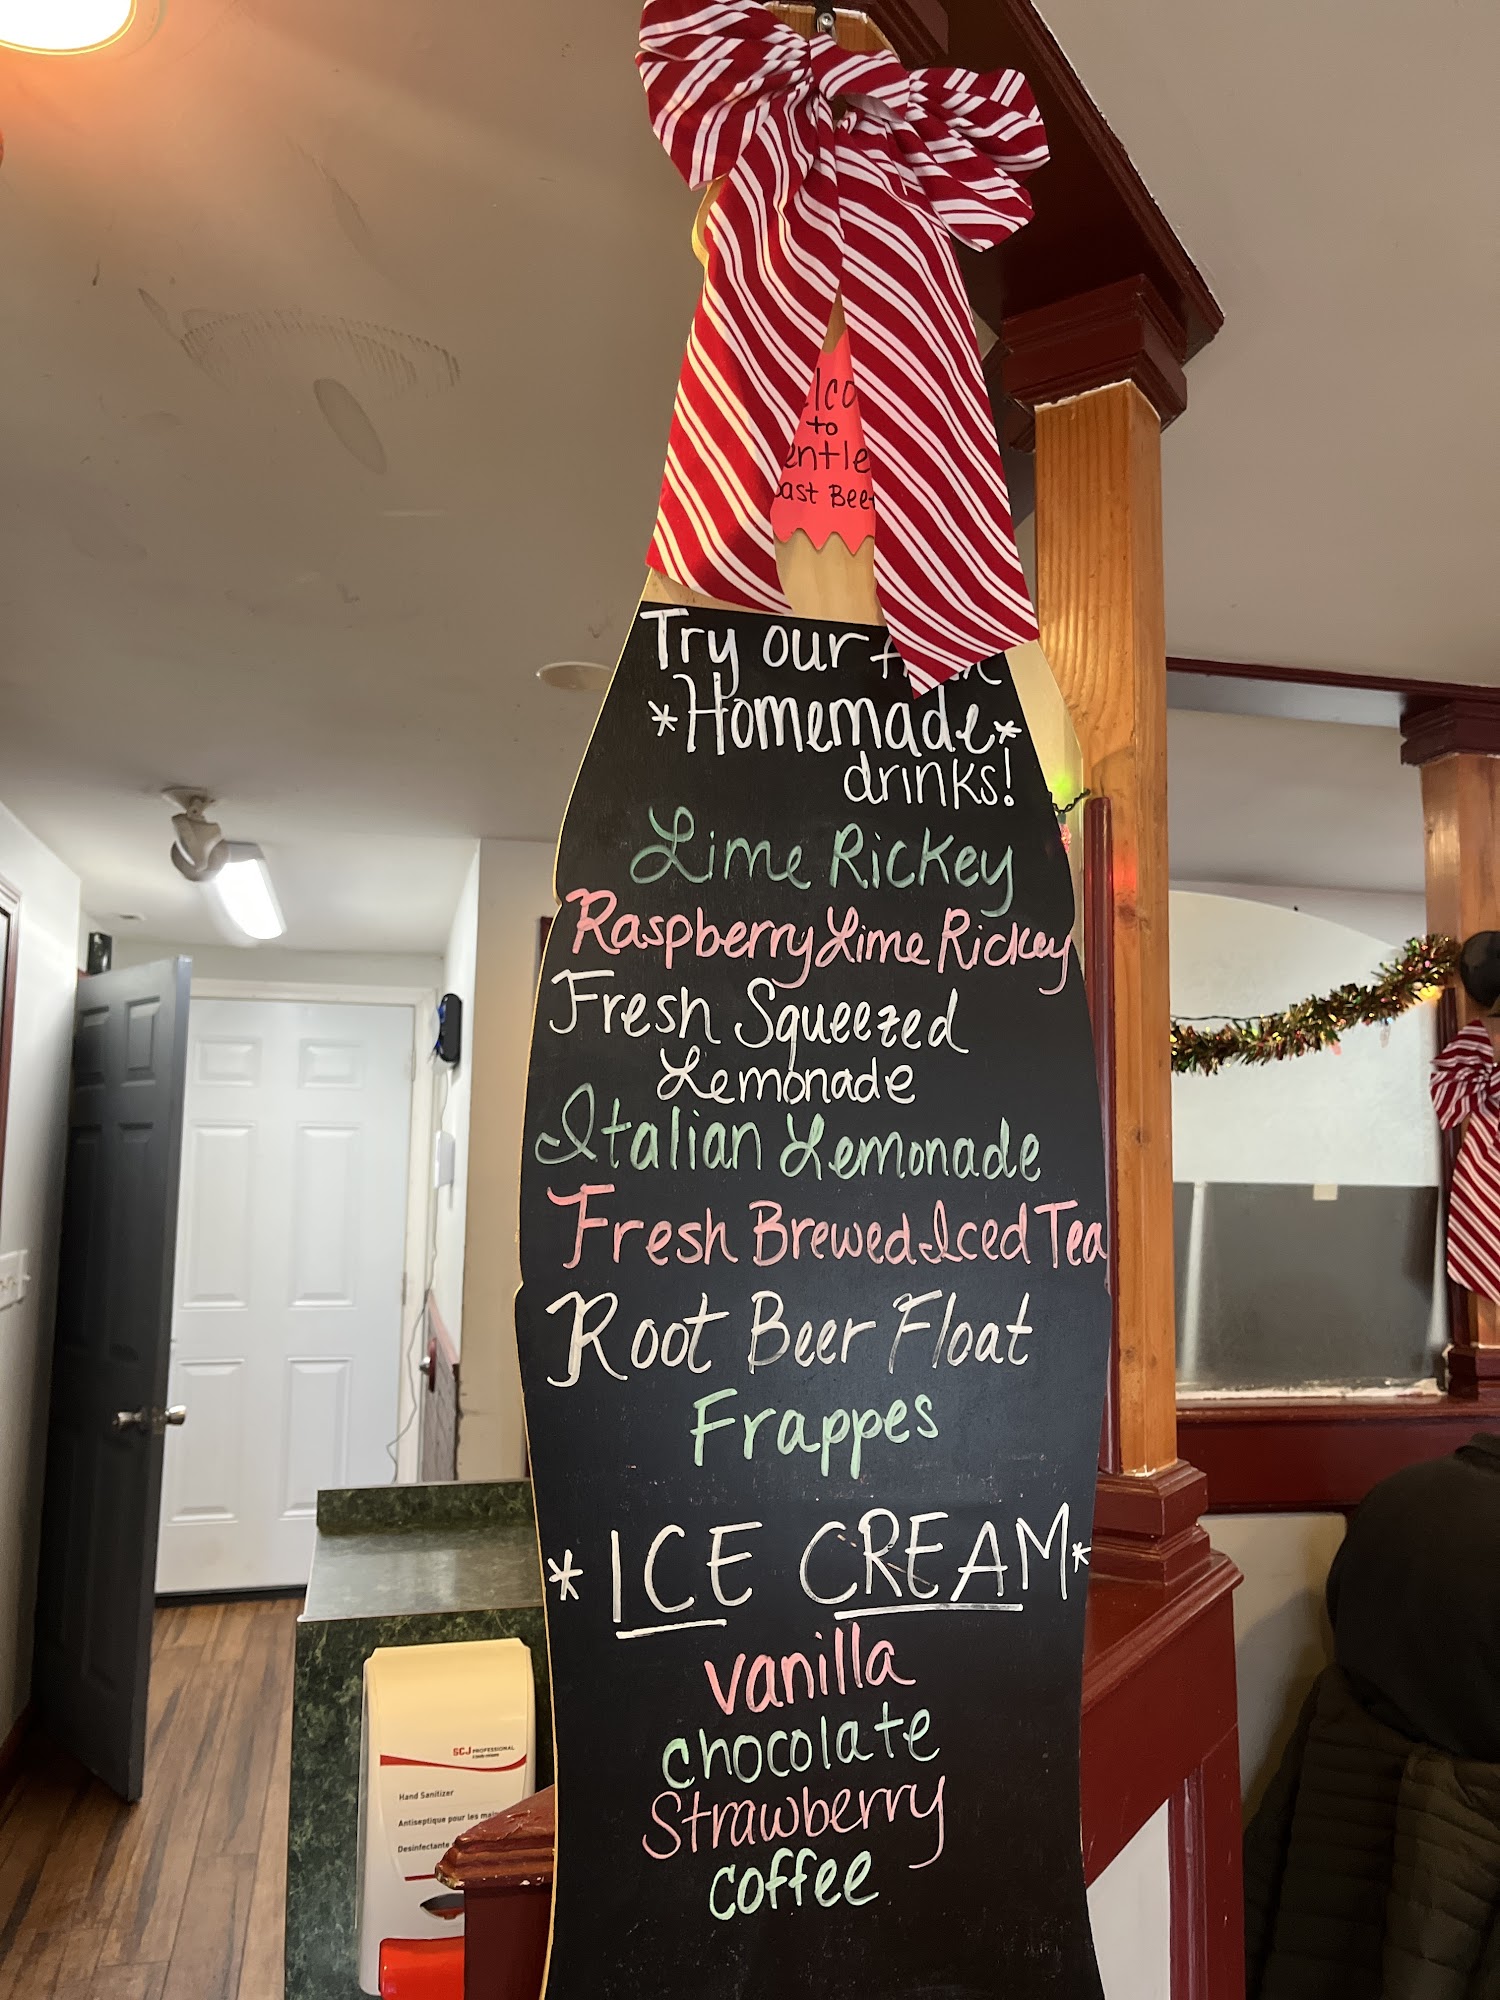 to
Try our
*Homemade*
drinks!
Lime Rickey
Raspberry Lime Rickey
Fresh Squeezed
Lemonade
Italian Lemonade
Fresh Brewed Iced Tea
Root Beer Float
Frappes
*ICE CREAM*
vanilla
chocolate
Strawberry
coffee
SCJ PROFESSIONAL
Hand Sanitizer
Antiseptique pour les
Desinfectante